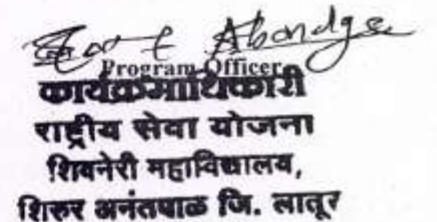 Program Officer
कार्यक्रमाधिकारी
राष्ट्रीय सेवा योजना
शिवनेरी महाविद्यालय,
शिरुर अनंतपाळ जि. लातूर